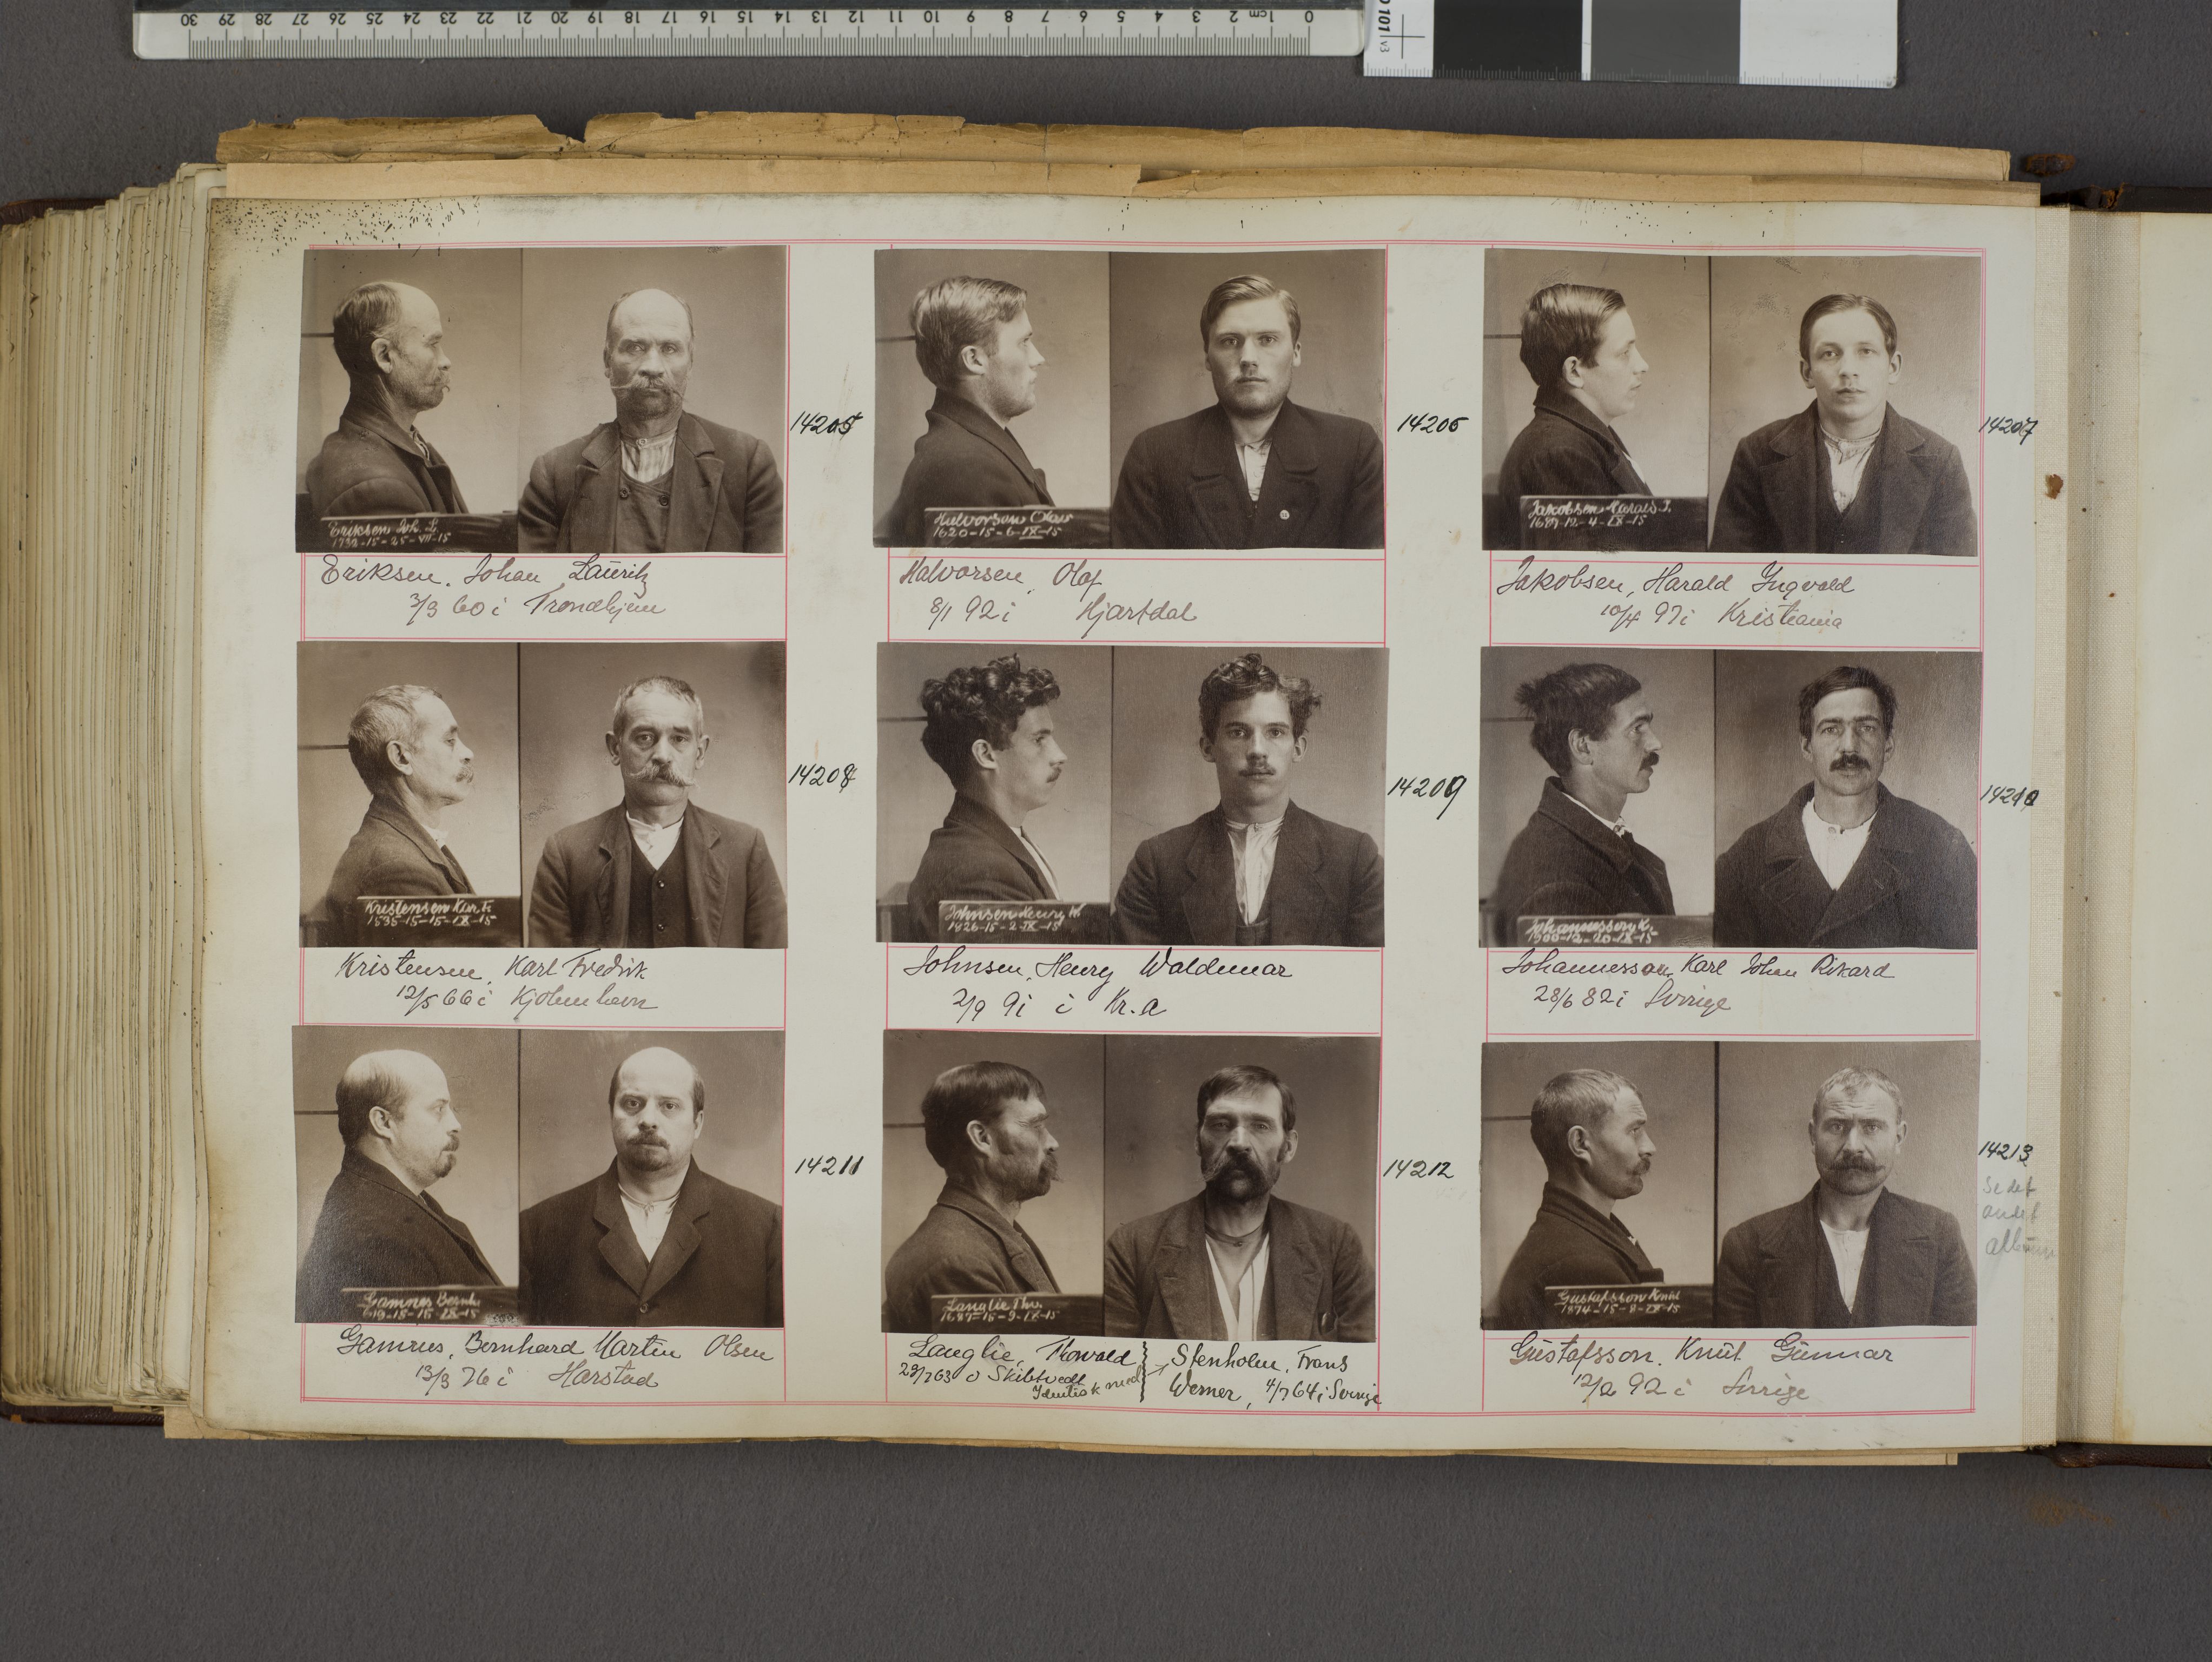 30 29 28 27 26 25 24 23 22 21 20 19 18 17 16 15 14 13 12 11 10 9 8 7 6 5 4 3 2 1cm 0
101 v3
Eriksen Joh. L.
14205
Eriksen, Johan Lauritz
3/3 60 i Trondhjem
Halvorsen Olav
1620-15-6-IX-15
14206
Halvorsen, Olaf
8/1 92 i Hjartdal
Jakobsen Harald I.
14207
Jakobsen, Harald Ingvald
10/4 97 i Kristiania
Kristensen Karl Fr.
1535-15-15-IX-15
14208
Kristensen, Karl Fredrik
12/5 66 i Kjobenhavn
Johnsen Henry W.
1426-15-2-IX-15
14209
Johnsen, Henry Waldemar
2/9 91 i Kr.a
Johannesson K.
1900-12-20-IX-15
14210
Johannesson, Karl Johan Rikard
28/6 82 i Sverige
Gamnes Bernh.
14211
Gamnes, Bernhard Martin Olsen
13/3 76 i Harstad
Langlie Thv.
1687-15-9-IX-15
14212
Langlie, Thorvald } → Stenholm, Frans
29/7 63 o Skibtvedt Identisk med Werner, 4/7 64 i Sverige
Gustafsson Knut
1874-15-8-IX-15
14213
Se det
andet
album
Gustafsson, Knut Gunnar
12/2 92 i Sverige